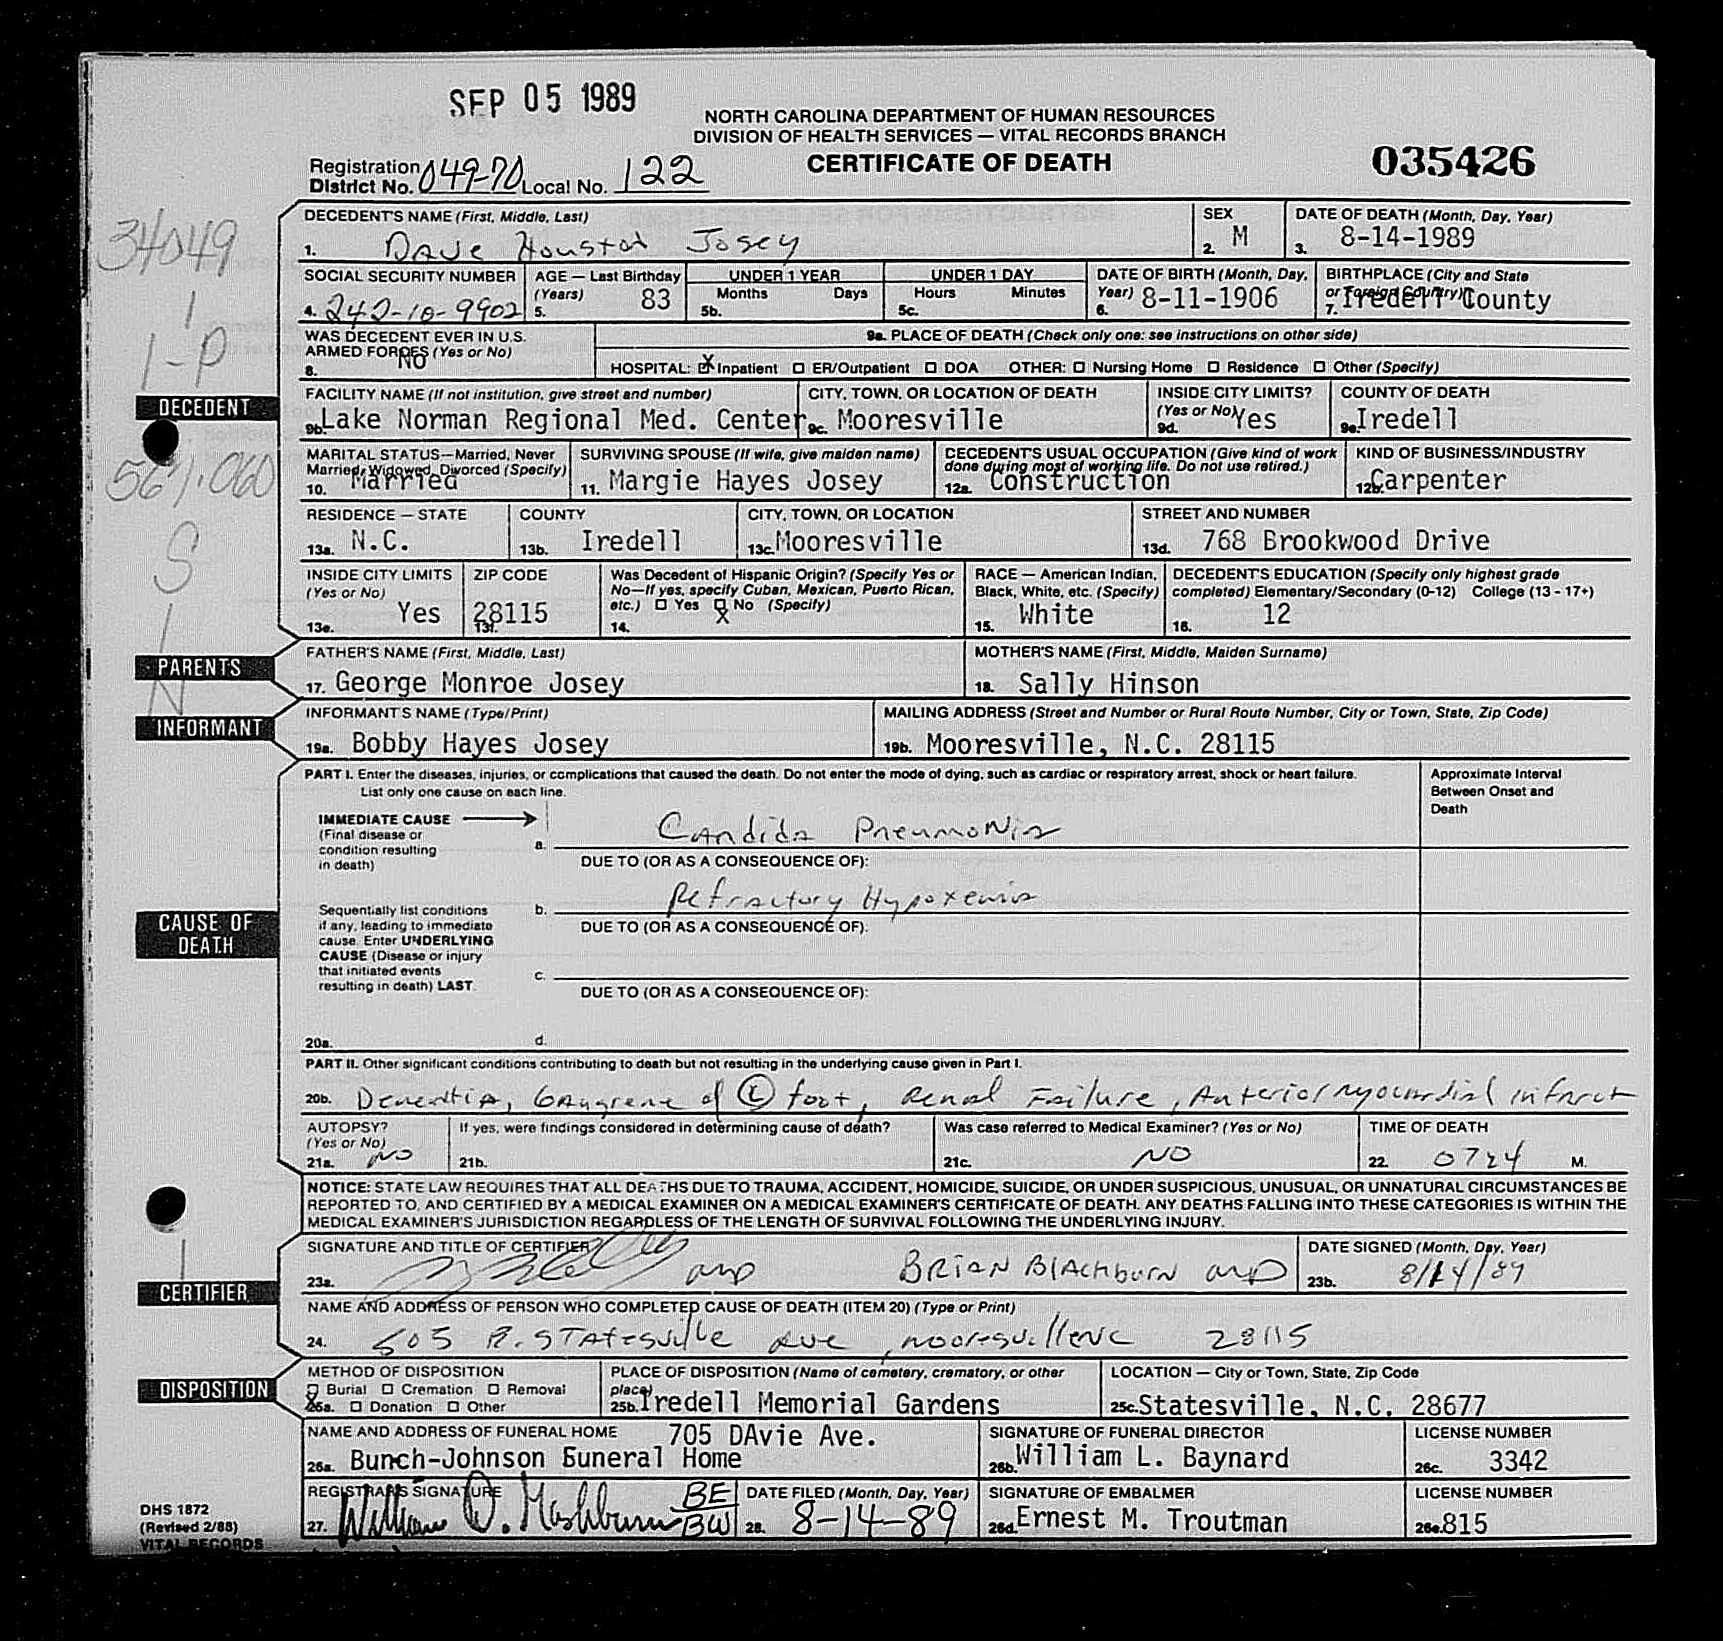 SEP 05 1989
NORTH CAROLINA DEPARTMENT OF HUMAN RESOURCES
DIVISION OF HEALTH SERVICES — VITAL RECORDS BRANCH
CERTIFICATE OF DEATH
035426
Registration District No. 049-70 Local No. 122
34049
1
1-P
DECEDENT
DECEDENT'S NAME (First, Middle, Last)
1. Dave Houston Josey
SEX
2. M
DATE OF DEATH (Month, Day, Year)
3. 8-14-1989
SOCIAL SECURITY NUMBER
4. 242-10-9902
AGE — Last Birthday (Years)
5. 83
UNDER 1 YEAR
Months Days
5b.
UNDER 1 DAY
Hours Minutes
5c.
DATE OF BIRTH (Month, Day, Year)
6. 8-11-1906
BIRTHPLACE (City and State or Foreign Country)
7. Iredell County
WAS DECEDENT EVER IN U.S. ARMED FORCES (Yes or No)
8. NO
9a. PLACE OF DEATH (Check only one: see instructions on other side)
HOSPITAL: ☒ Inpatient ☐ ER/Outpatient ☐ DOA OTHER: ☐ Nursing Home ☐ Residence ☐ Other (Specify)
FACILITY NAME (If not institution, give street and number)
9b. Lake Norman Regional Med. Center
CITY, TOWN, OR LOCATION OF DEATH
9c. Mooresville
INSIDE CITY LIMITS? (Yes or No)
9d. Yes
COUNTY OF DEATH
9e. Iredell
MARITAL STATUS—Married, Never Married, Widowed, Divorced (Specify)
10. Married
SURVIVING SPOUSE (If wife, give maiden name)
11. Margie Hayes Josey
DECEDENT'S USUAL OCCUPATION (Give kind of work done during most of working life. Do not use retired.)
12a. Construction
KIND OF BUSINESS/INDUSTRY
12b. Carpenter
RESIDENCE — STATE
13a. N.C.
COUNTY
13b. Iredell
CITY, TOWN, OR LOCATION
13c. Mooresville
STREET AND NUMBER
13d. 768 Brookwood Drive
INSIDE CITY LIMITS (Yes or No)
13e. Yes
ZIP CODE
13f. 28115
Was Decedent of Hispanic Origin? (Specify Yes or No—If yes, specify Cuban, Mexican, Puerto Rican, etc.) ☐ Yes ☒ No (Specify)
14.
RACE — American Indian, Black, White, etc. (Specify)
15. White
DECEDENT'S EDUCATION (Specify only highest grade completed) Elementary/Secondary (0-12) College (13 - 17+)
16. 12
PARENTS
FATHER'S NAME (First, Middle, Last)
17. George Monroe Josey
MOTHER'S NAME (First, Middle, Maiden Surname)
18. Sally Hinson
INFORMANT
INFORMANT'S NAME (Type/Print)
19a. Bobby Hayes Josey
MAILING ADDRESS (Street and Number or Rural Route Number, City or Town, State, Zip Code)
19b. Mooresville, N.C. 28115
CAUSE OF DEATH
PART I. Enter the diseases, injuries, or complications that caused the death. Do not enter the mode of dying, such as cardiac or respiratory arrest, shock or heart failure.
List only one cause on each line.
Approximate Interval Between Onset and Death
IMMEDIATE CAUSE
(Final disease or condition resulting in death)
a. Candida Pneumonia
DUE TO (OR AS A CONSEQUENCE OF):
b. Refractory Hypoxemia
DUE TO (OR AS A CONSEQUENCE OF):
Sequentially list conditions if any, leading to immediate cause. Enter UNDERLYING CAUSE (Disease or injury that initiated events resulting in death) LAST.
c.
DUE TO (OR AS A CONSEQUENCE OF):
20a. d.
PART II. Other significant conditions contributing to death but not resulting in the underlying cause given in Part I.
20b. Dementia, Gangrene of Ⓛ foot, Renal Failure, Anterior myocardial infarct
AUTOPSY? (Yes or No)
21a. NO
If yes, were findings considered in determining cause of death?
21b.
Was case referred to Medical Examiner? (Yes or No)
21c. NO
TIME OF DEATH
22. 0724 M.
NOTICE: STATE LAW REQUIRES THAT ALL DEATHS DUE TO TRAUMA, ACCIDENT, HOMICIDE, SUICIDE, OR UNDER SUSPICIOUS, UNUSUAL, OR UNNATURAL CIRCUMSTANCES BE
REPORTED TO, AND CERTIFIED BY A MEDICAL EXAMINER ON A MEDICAL EXAMINER'S CERTIFICATE OF DEATH. ANY DEATHS FALLING INTO THESE CATEGORIES IS WITHIN THE
MEDICAL EXAMINER'S JURISDICTION REGARDLESS OF THE LENGTH OF SURVIVAL FOLLOWING THE UNDERLYING INJURY.
CERTIFIER
SIGNATURE AND TITLE OF CERTIFIER
23a. MD BRIAN BlAchburn MD
DATE SIGNED (Month, Day, Year)
23b. 8/14/89
NAME AND ADDRESS OF PERSON WHO COMPLETED CAUSE OF DEATH (ITEM 20) (Type or Print)
24. 505 Statesville Ave, Mooresville NC 28115
DISPOSITION
METHOD OF DISPOSITION
☒ Burial ☐ Cremation ☐ Removal
25a. ☐ Donation ☐ Other
PLACE OF DISPOSITION (Name of cemetery, crematory, or other place)
25b. Iredell Memorial Gardens
LOCATION — City or Town, State, Zip Code
25c. Statesville, N.C. 28677
NAME AND ADDRESS OF FUNERAL HOME 705 DAvie Ave.
26a. Bunch-Johnson Euneral Home
SIGNATURE OF FUNERAL DIRECTOR
26b. William L. Baynard
LICENSE NUMBER
26c. 3342
REGISTRARS SIGNATURE
27. William D. Mashburn BE BW
DATE FILED (Month, Day, Year)
28. 8-14-89
SIGNATURE OF EMBALMER
26d. Ernest M. Troutman
LICENSE NUMBER
26e. 815
DHS 1872
(Revised 2/88)
VITAL RECORDS